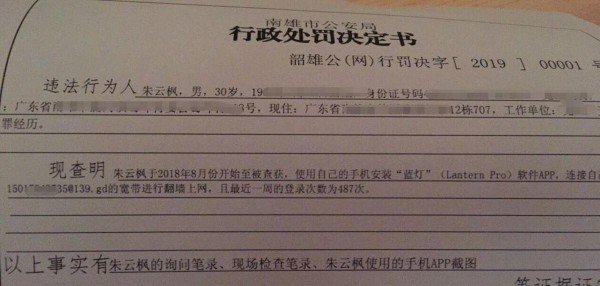 南雄市公安局
行政处罚决定书
韶雄公(网)行罚决字[2019]00001号
违法行为人 朱云枫,男,30岁,19 身份证号码4
:广东省 3号,现住:广东省 12栋707,工作单位:
罪经历。
现查明 朱云枫于2018年8月份开始至被查获,使用自己的手机安装“蓝灯”(Lantern Pro)软件APP,连接自
@139.gd的宽带进行翻墙上网,且最近一周的登录次数为487次。
以上事实有朱云枫的询问笔录、现场检查笔录、朱云枫使用的手机APP截图